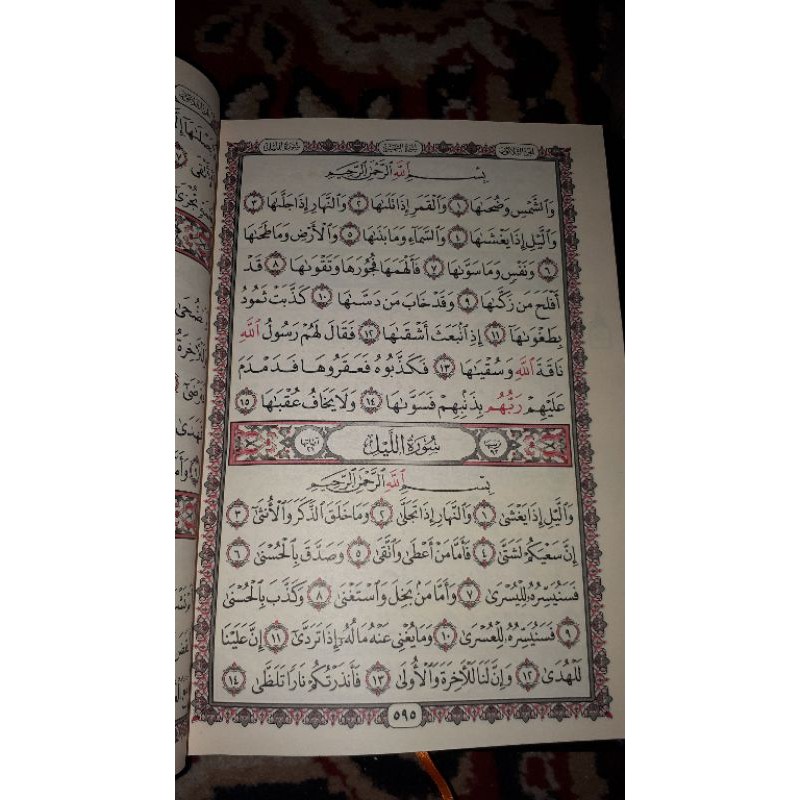 سورة الشمس
بِسْمِ ٱللَّهِ ٱلرَّحْمَٰنِ ٱلرَّحِيمِ
وَٱلشَّمْسِ وَضُحَىٰهَا ١ وَٱلْقَمَرِ إِذَا تَلَىٰهَا ٢ وَٱلنَّهَارِ إِذَا جَلَّىٰهَا ٣
وَٱلَّيْلِ إِذَا يَغْشَىٰهَا ٤ وَٱلسَّمَآءِ وَمَا بَنَىٰهَا ٥ وَٱلْأَرْضِ وَمَا طَحَىٰهَا
٦ وَنَفْسٍ وَمَا سَوَّىٰهَا ٧ فَأَلْهَمَهَا فُجُورَهَا وَتَقْوَىٰهَا ٨ قَدْ
أَفْلَحَ مَن زَكَّىٰهَا ٩ وَقَدْ خَابَ مَن دَسَّىٰهَا ١٠ كَذَّبَتْ ثَمُودُ
بِطَغْوَىٰهَآ ١١ إِذِ ٱنۢبَعَثَ أَشْقَىٰهَا ١٢ فَقَالَ لَهُمْ رَسُولُ ٱللَّهِ
نَاقَةَ ٱللَّهِ وَسُقْيَٰهَا ١٣ فَكَذَّبُوهُ فَعَقَرُوهَا فَدَمْدَمَ
عَلَيْهِمْ رَبُّهُم بِذَنۢبِهِمْ فَسَوَّىٰهَا ١٤ وَلَا يَخَافُ عُقْبَٰهَا ١٥
سُورَةُ اللَّيْلِ
بِسْمِ ٱللَّهِ ٱلرَّحْمَٰنِ ٱلرَّحِيمِ
وَٱلَّيْلِ إِذَا يَغْشَىٰ ١ وَٱلنَّهَارِ إِذَا تَجَلَّىٰ ٢ وَمَا خَلَقَ ٱلذَّكَرَ وَٱلْأُنثَىٰٓ ٣
إِنَّ سَعْيَكُمْ لَشَتَّىٰ ٤ فَأَمَّا مَنْ أَعْطَىٰ وَٱتَّقَىٰ ٥ وَصَدَّقَ بِٱلْحُسْنَىٰ ٦
فَسَنُيَسِّرُهُۥ لِلْيُسْرَىٰ ٧ وَأَمَّا مَنۢ بَخِلَ وَٱسْتَغْنَىٰ ٨ وَكَذَّبَ بِٱلْحُسْنَىٰ
٩ فَسَنُيَسِّرُهُۥ لِلْعُسْرَىٰ ١٠ وَمَا يُغْنِى عَنْهُ مَالُهُۥٓ إِذَا تَرَدَّىٰٓ ١١ إِنَّ عَلَيْنَا
لَلْهُدَىٰ ١٢ وَإِنَّ لَنَا لَلْءَاخِرَةَ وَٱلْأُولَىٰ ١٣ فَأَنذَرْتُكُمْ نَارًا تَلَظَّىٰ ١٤
٥٩٥